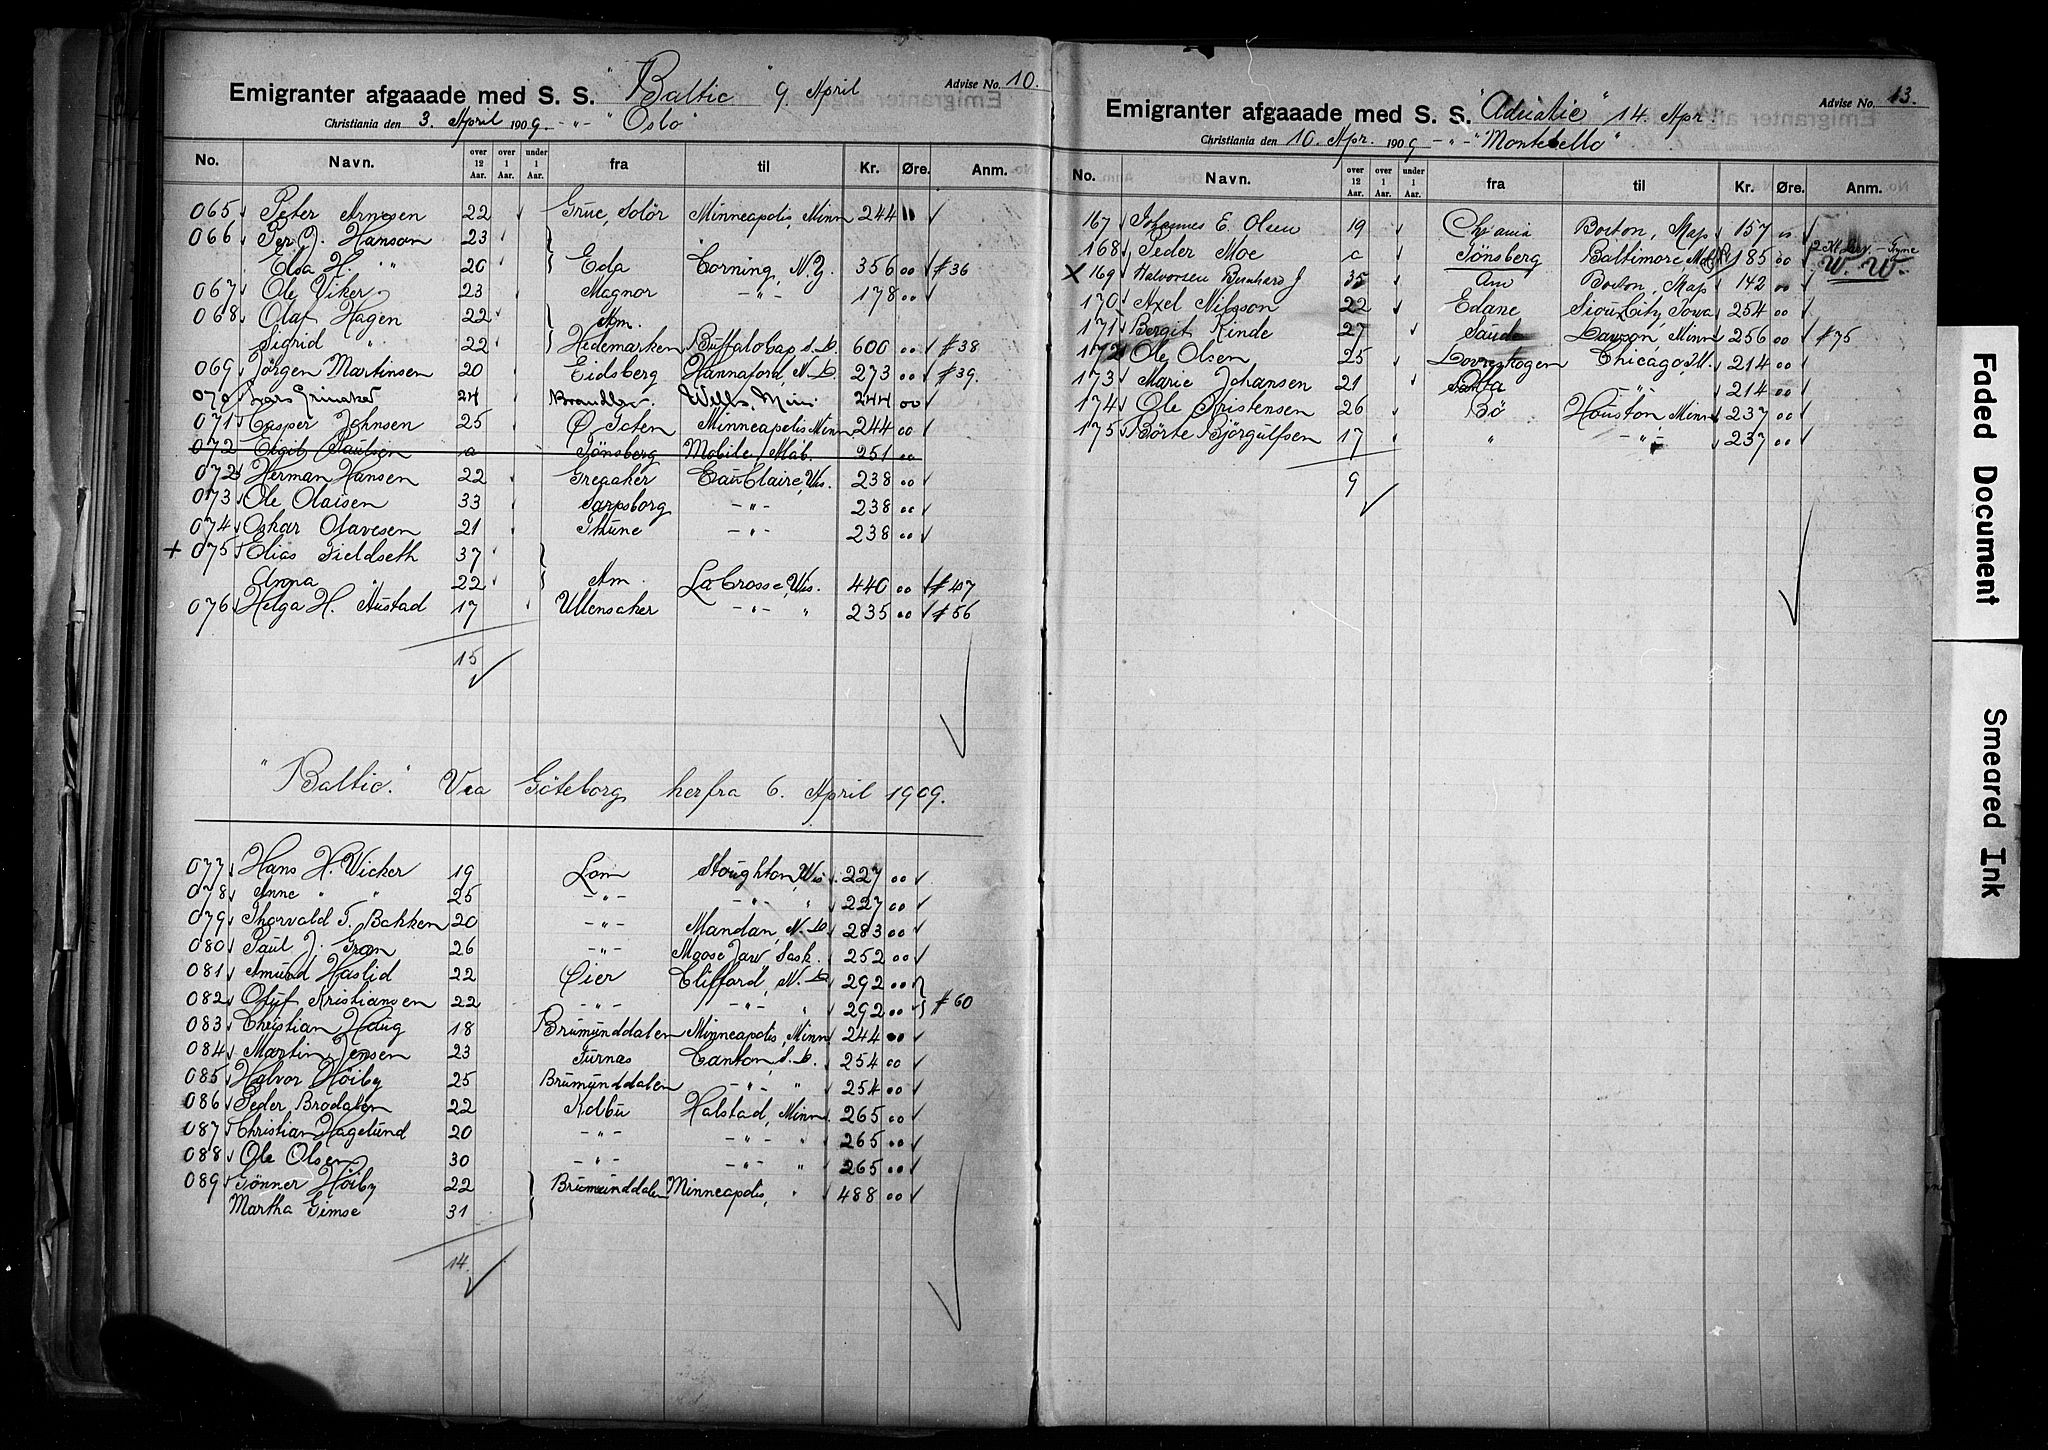 Emigranter afgaaade med S. S. "Baltic" 9. April Advise No. 10.
Christiania den 3. April 1909. -"- "Oslo"
No. Navn. over 12 Aar. over 1 Aar. under 1 Aar. fra til Kr. Øre. Anm.
065 Peter Arnesen 22 Grue, Solör Minneapolis, Minn 244
066 Per J. Hanson 23
Elsa H. " " 20 Eda Corning, N.Y. 356 00 #36
067 Ole Viker 23 Magnor -"- 178 00
068 Olaf Hagen 22 Am.
Sigrid " 22 Hedemarken Buffalo Gap, S.D. 600 00 #38
069 Jørgen Martinsen 20 Eidsberg Hannaford, N.D. 273 00 #39.
070 Lars Grinaker 24 Brandbu Wells, Minn 244 00
071 Casper Johnsen 25 Ø Toten Minneapolis Minn 244 00
072 Eigil Paulsen a Tönsberg Mobile, Alab. 251 00
072 Herman Hansen 22 Greaaker Eau Claire, Wis. 238 00
073 Ole Olaisen 33 Sarpsborg -"- 238 00
074 Oskar Olavesen 21 Thune -"- 238 00
+ 075 Elias Fieldseth 37
Anna 22 Am. La Crosse, Wis. 440 00 #47
076 Helga H. Austad 17 Ullensaker -"- " 235 00 #56
15
"Baltic." Via Göteborg herfra 6. April 1909.
077 Hans H. Wicker 19 Lom Stoughton, Wis. 227 00
078 Anne " " 25 -"- -"- " 227 00
079 Thorvald T. Bakken 20 -"- Mandan, N.D. 283 00
080 Paul J. Gran 26 -"- Moose Jaw Sask. 252 00
081 Amund Haslid 22 Öier Clifford, N.D. 292 00
082 Oluf Kristiansen 22 -"- -"- " 292 00 #60
083 Christian Haug 18 Brumunddalen Minneapolis, Minn 244 00
084 Martin Jensen 23 Furnas Canton, S.D. 254 00
085 Halvor Höiby 25 Brumunddalen -"- " 254 00
086 Peder Brodalen 22 Kolbu Halstad, Minn. 265 00
087 Christian Hagelund 20 -"- -"- " 265 00
088 Ole Olsen 30 -"- -"- " 265 00
089 Tönner Höiby 22 Brumunddalen Minneapolis, " 488 00
Martha Gimse 31
14.
Emigranter afgaaade med S. S. "Adriatic" 14. Apr. Advise No. 13.
Christiania den 10. Apr. 1909 -"- "Montebello"
No. Navn. over 12 Aar. over 1 Aar. under 1 Aar. fra til Kr. Øre. Anm.
167 Johannes E. Olsen 19 Chrania Boston, Mass 157 00
168 Peder Moe a Tönsberg Baltimore Md. 185 00 - Tyne W. W.
X 169 Halvorsen Bernhard J 35 Am Boston, Mass 142 00
170 Axel Nilsson 22 Edane Sioux City, Iowa 254 00
171 Bergit Kinde 27 Saude Lawson, Minn 256 00 #75
172 Ole Olsen 25 Chicago, Ill. 214 00
173 Marie Johansen 21 Otta " 214 00
174 Ole Kristensen 26 Bö Houston, Minn 237 00
175 Börte Björgulfsen 17 " -"- 237 00
9
Faded Document
Smeared Ink